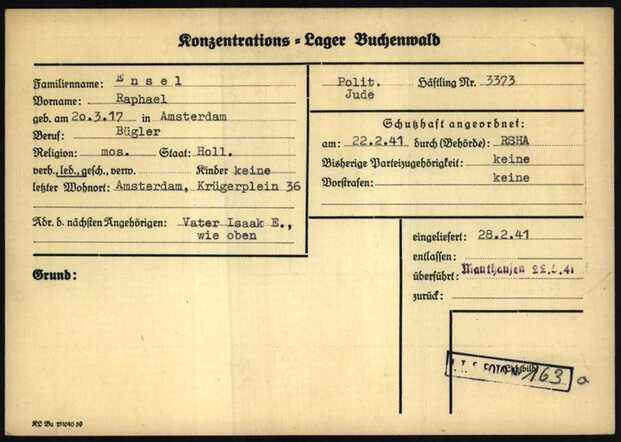 Konzentrations = Lager Buchenwald
Familienname: Ensel
Vorname: Raphael
geb. am 20.3.17 in Amsterdam
Beruf: Bügler
Religion: mos. Staat: Holl.
verh., led., gesch., verw. Kinder keine
letzter Wohnort: Amsterdam, Krügerplein 36
Adr. d. nächsten Angehörigen: Vater Isaak E.,
wie oben
Grund:
Polit. Häftling Nr. 3373
Jude
Schutzhaft angeordnet:
am: 22.2.41 durch (Behörde): RSHA
Bisherige Parteizugehörigkeit: keine
Vorstrafen: keine
eingeliefert: 28.2.41
entlassen:
überführt: Mauthausen 22. 41
zurück:
I.T.S. FOTO Nr 163 a
KL Bu